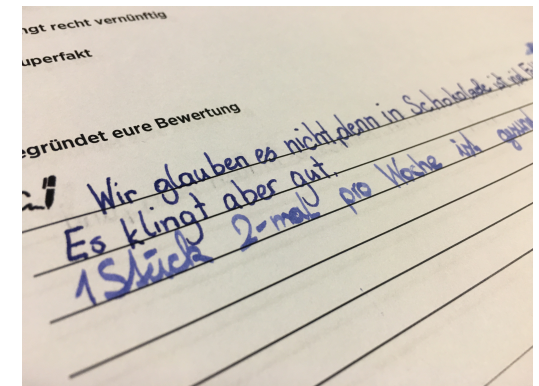 ngt recht vernünftig
uperfakt
egründet eure Bewertung
Wir glauben es nicht, denn in Schokolade ist viel
Es klingt aber gut.
1 Stück 2-mal pro Woche ist